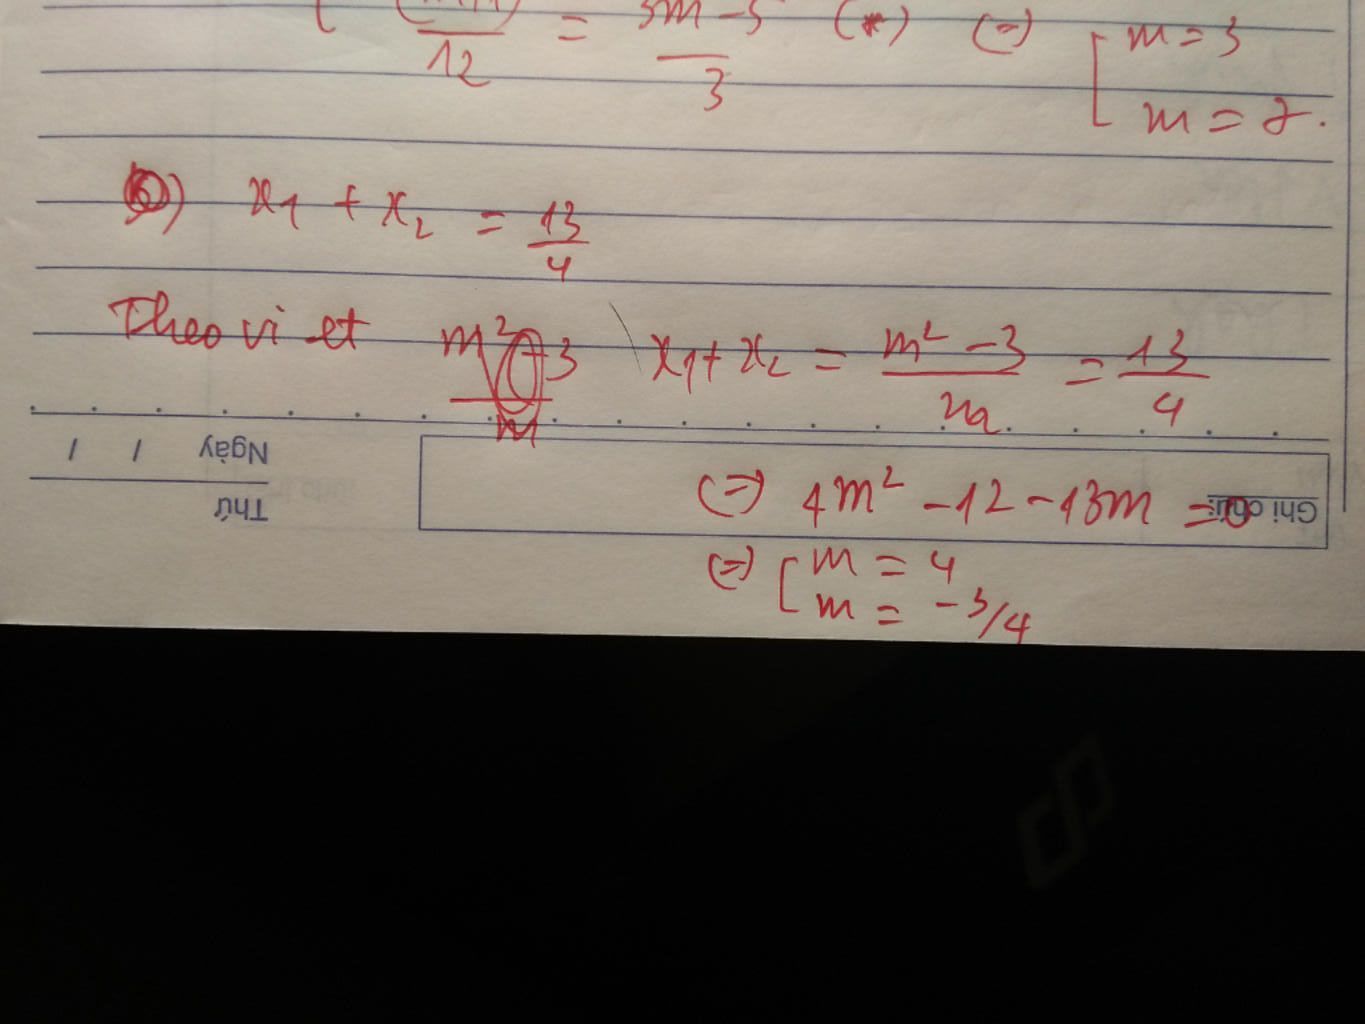 12 = 3 (*) (=) [ m = 3
m = 2.
) x₁ + x₂ = 13/4
Theo vi et m² 3 / m x₁ + x₂ = m² - 3 / = 13/4
Ngày / /
Thứ
Ghi chú:
(=) 4m² - 12 - 13m = 0
(=) [ m = 4
m = -3/4